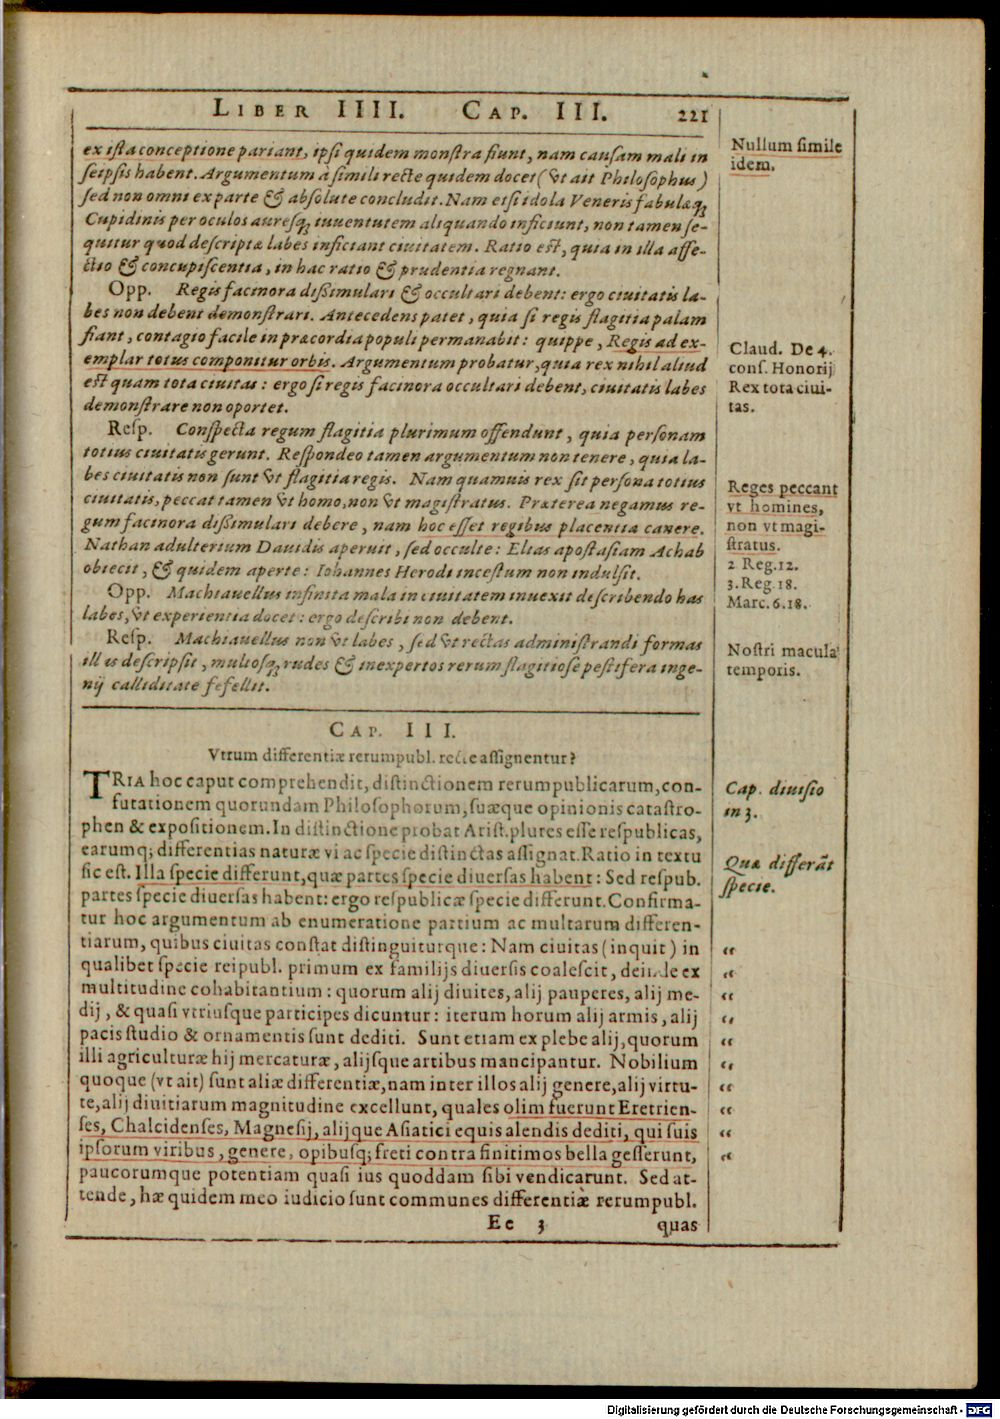 LIBER IIII. CAP. III. 221
ex ista conceptione pariant, ipsi quidem monstra fiunt, nam causam mali in
seipsis habent. Argumentum à simili recte quidem docet (vt ait Philosophus)
sed non omni ex parte & absolute concludit. Nam etsi idola Veneris fabulæq;
Cupidinis per oculos auresq; iuuentutem aliquando inficiunt, non tamen se-
quitur quod descriptæ labes inficiant ciuitatem. Ratio est, quia in illa affe-
ctio & concupiscentia, in hac ratio & prudentia regnant.
Nullum simile
idem.
Opp. Regis facinora dißimulari & occultari debent: ergo ciuitatis la-
bes non debent demonstrari. Antecedens patet, quia si regis flagitia palam
fiant, contagio facile in præcordia populi permanabit: quippe, Regis ad ex-
emplar totus componitur orbis. Argumentum probatur, quia rex nihil aliud
est quam tota ciuitas: ergo si regis facinora occultari debent, ciuitatis labes
demonstrare non oportet.
Claud. De 4.
cons. Honorij
Rex tota ciui-
tas.
Resp. Conspecta regum flagitia plurimum offendunt, quia personam
totius ciuitatis gerunt. Respondeo tamen argumentum non tenere, quia la-
bes ciuitatis non sunt vt flagitia regis. Nam quamuis rex sit persona totius
ciuitatis, peccat tamen vt homo, non vt magistratus. Præterea negamus re-
gum facinora dißimulari debere, nam hoc esset regibus placentia canere.
Nathan adulterium Dauidis aperuit, sed occulte: Elias apostasiam Achab
obiecit, & quidem aperte: Iohannes Herodi incestum non indulsit.
Reges peccant
vt homines,
non vt magi-
stratus.
2 Reg. 12.
3. Reg. 18.
Marc. 6. 18.
Opp. Machiauellus infinita mala in ciuitatem inuexit describendo has
labes, vt experientia docet: ergo describi non debent.
Resp. Machiauellus non vt labes, sed vt rectas administrandi formas
illas descripsit, multosq; rudes & inexpertos rerum flagitiose pestifera inge-
nij calliditate fefellit.
Nostri macula
temporis.
CAP. III.
Vtrum differentiæ rerumpubl. recte assignentur?
TRIA hoc caput comprehendit, distinctionem rerumpublicarum, con-
futationem quorundam Philosophorum, suæque opinionis catastro-
phen & expositionem. In distinctione probat Arist. plures esse respublicas,
earumq; differentias naturæ vi ac specie distinctas assignat. Ratio in textu
sic est. Illa specie differunt, quæ partes specie diuersas habent: Sed respub.
partes specie diuersas habent: ergo respublicæ specie differunt. Confirma-
tur hoc argumentum ab enumeratione partium ac multarum differen-
tiarum, quibus ciuitas constat distinguiturque: Nam ciuitas (inquit) in
qualibet specie reipubl. primum ex familijs diuersis coalescit, deinde ex
multitudine cohabitantium: quorum alij diuites, alij pauperes, alij me-
dij, & quasi vtriusque participes dicuntur: iterum horum alij armis, alij
pacis studio & ornamentis sunt dediti. Sunt etiam ex plebe alij, quorum
illi agriculturæ hij mercaturæ, alijsque artibus mancipantur. Nobilium
quoque (vt ait) sunt aliæ differentiæ, nam inter illos alij genere, alij virtu-
te, alij diuitiarum magnitudine excellunt, quales olim fuerunt Eretrien-
ses, Chalcidenses, Magnesij, alijque Asiatici equis alendis dediti, qui suis
ipsorum viribus, genere, opibusq; freti contra finitimos bella gesserunt,
paucorumque potentiam quasi ius quoddam sibi vendicarunt. Sed at-
tende, hæ quidem meo iudicio sunt communes differentiæ rerumpubl.
Cap. diuisio
in 3.
Quæ differāt
specie.
“
“
“
“
“
“
“
“
“
“
Ee 3 quas
Digitalisierung gefördert durch die Deutsche Forschungsgemeinschaft - DFG